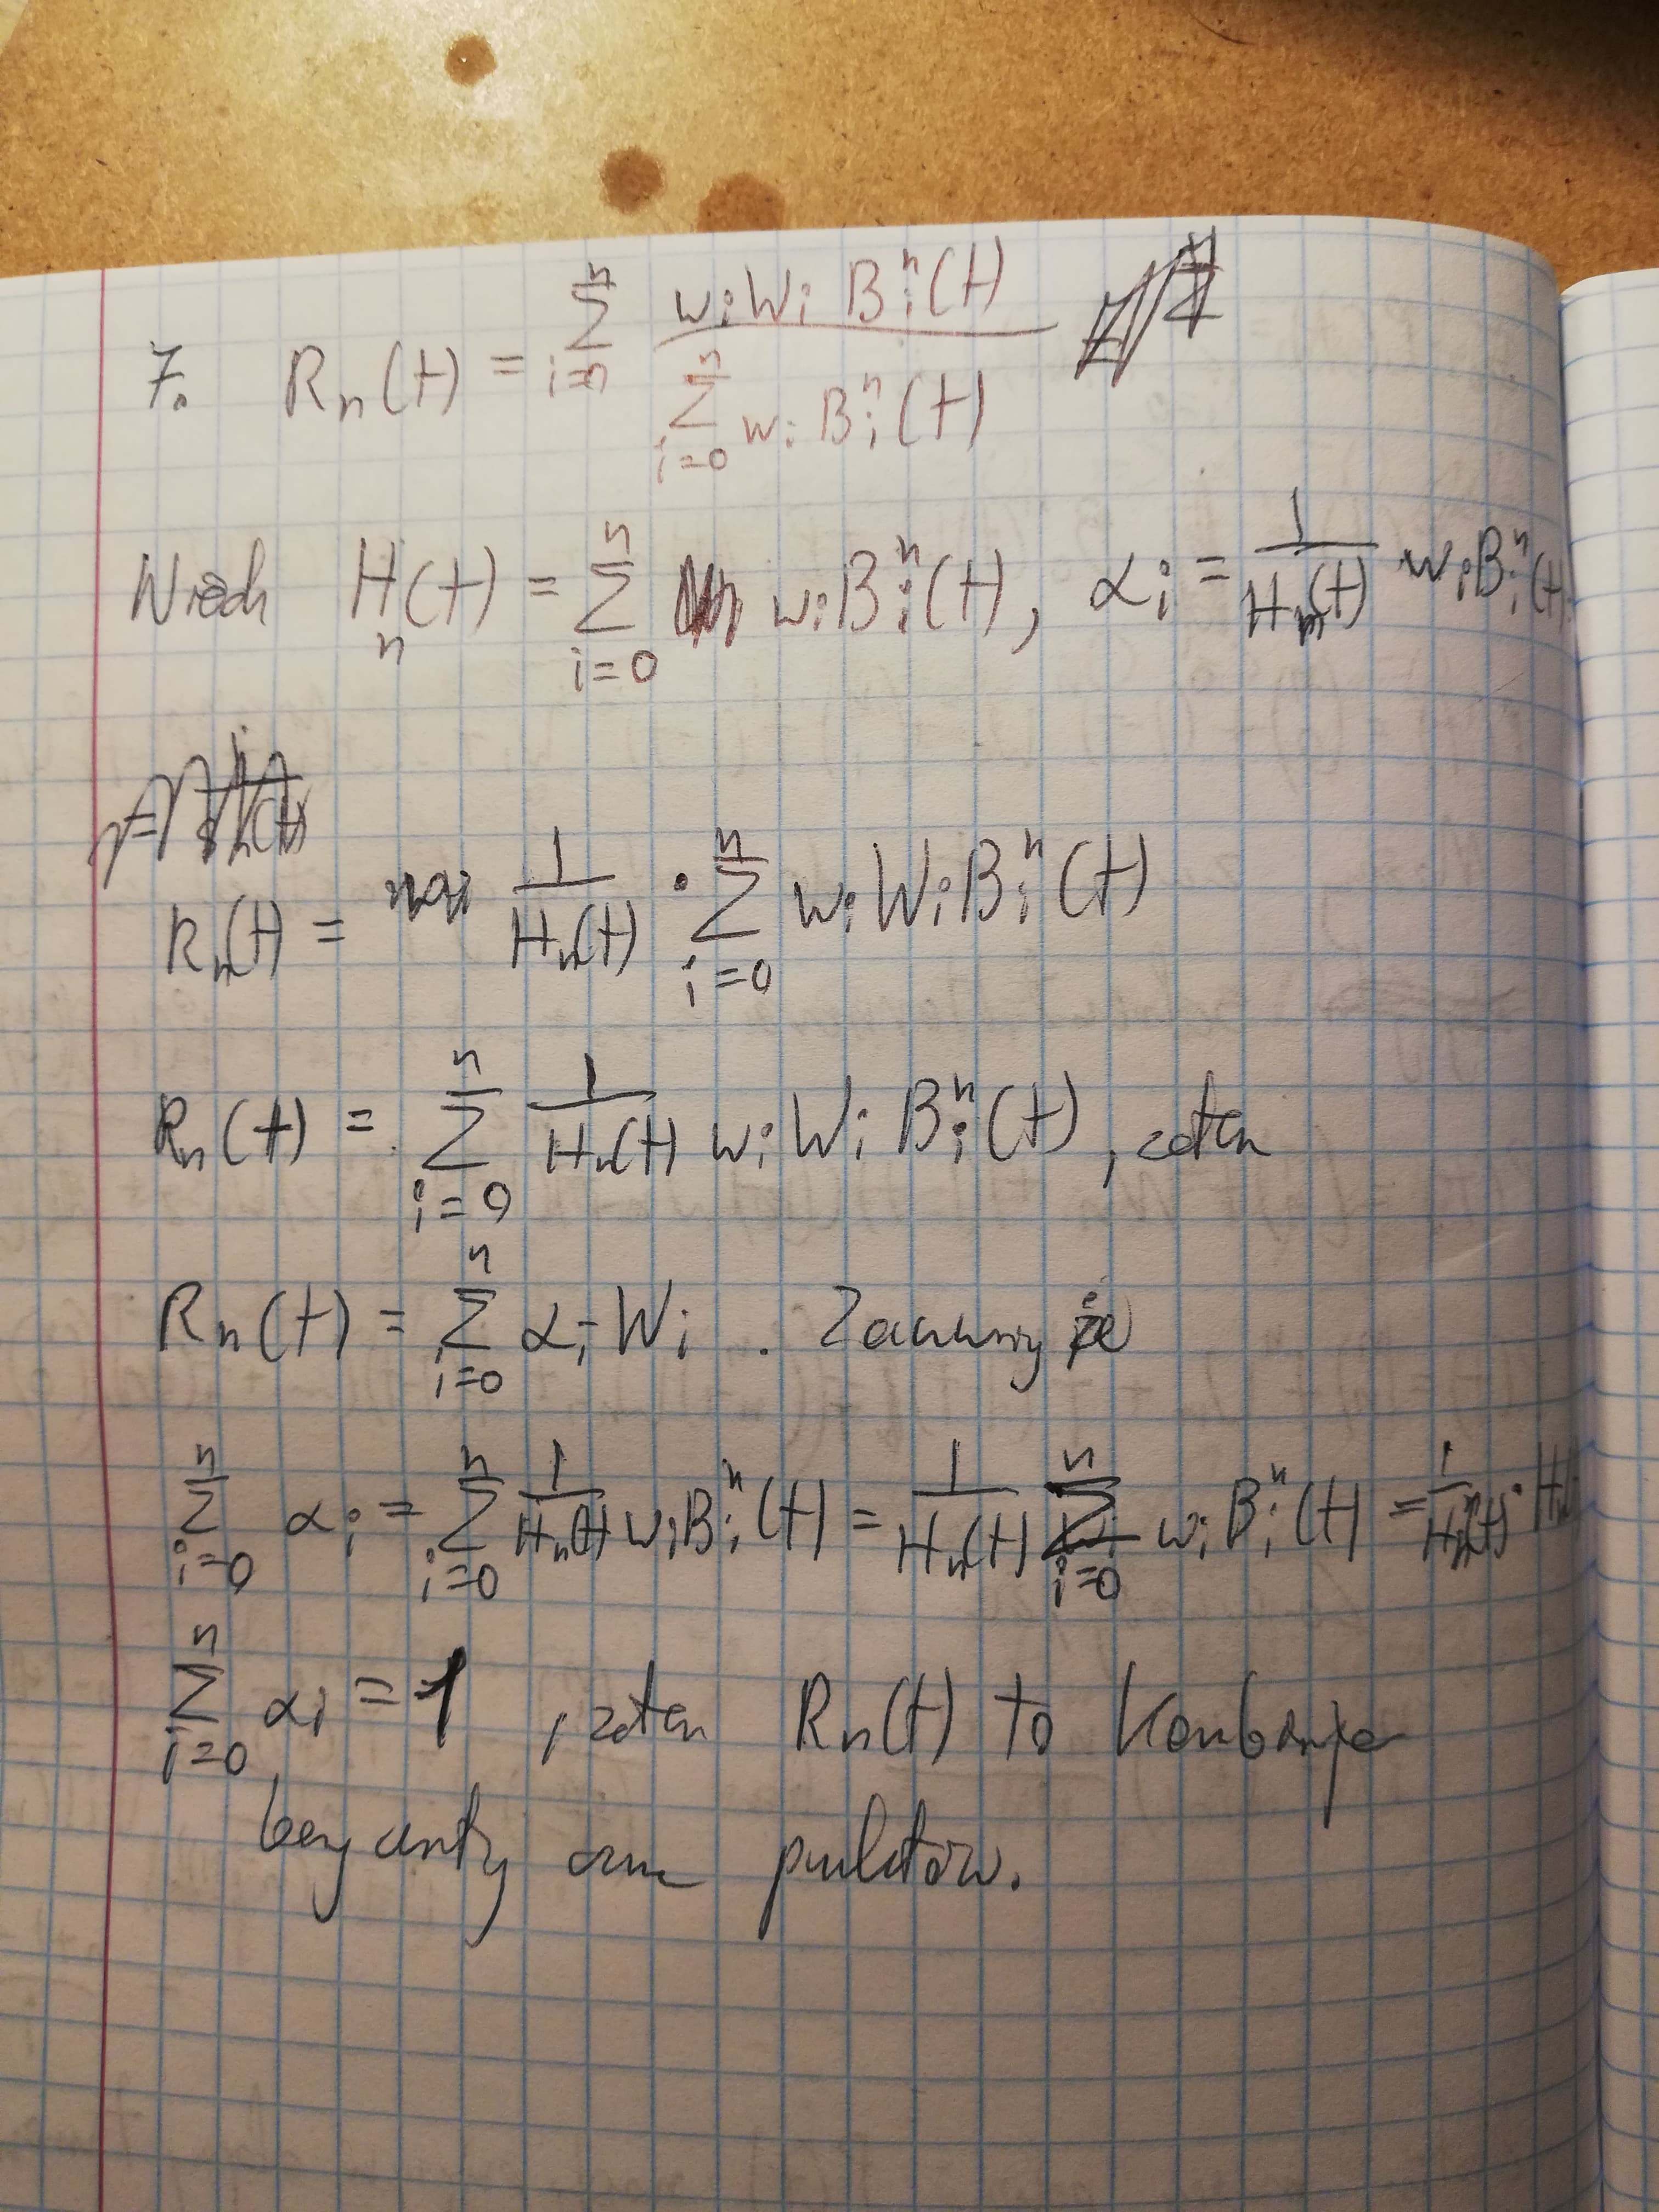 7. Rₙ(t) = Σ_{i=n}^{n} wᵢWᵢBᵢⁿ(t) / Σ_{i=0}^{n} wᵢBᵢⁿ(t)
Niech Hₙ(t) = Σ_{i=0}^{n} wᵢBᵢⁿ(t), αᵢ = 1/Hₙ(t) wᵢBᵢⁿ(t)
Rₙ(t) = 1/Hₙ(t) · Σ_{i=0}^{n} wᵢWᵢBᵢⁿ(t)
Rₙ(t) = Σ_{i=0}^{n} 1/Hₙ(t) wᵢWᵢBᵢⁿ(t), zatem
Rₙ(t) = Σ_{i=0}^{n} αᵢ·Wᵢ. Zauważmy że
Σ_{i=0}^{n} αᵢ = Σ_{i=0}^{n} 1/Hₙ(t) wᵢBᵢⁿ(t) = 1/Hₙ(t) Σ_{i=0}^{n} wᵢBᵢⁿ(t) = 1/Hₙ(t) · Hₙ
Σ_{i=0}^{n} αᵢ = 1, zatem Rₙ(t) to kombinacja
barycentryczna punktów.